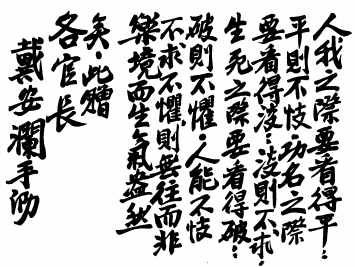 人我之際要看得平：
平則不忮功名之際
要看得淡：淡則不求：
生死之際要看得破：
破則不懼．人能不忮
不求不懼則無往而非
樂境而生氣盎然
矣．此贈
各官長
戴安瀾手泐